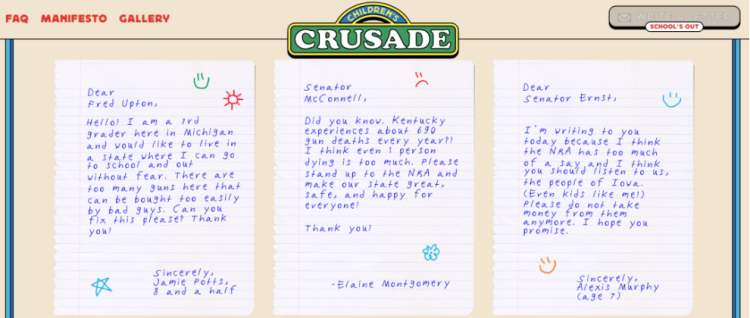 FAQ MANIFESTO GALLERY
CHILDREN'S
CRUSADE
WRITE LETTERS
SCHOOL'S OUT
Dear
Fred Upton,
Hello! I am a 3rd
grader here in Michigan
and would like to live in
a state where I can go
to school and out
without fear. There are
too many guns here that
can be bought too easily
by bad guys. Can you
fix this please? Thank
you!
Sincerely,
Jamie Potts,
8 and a half
Senator
McConnell,
Did you know. Kentucky
experiences about 690
gun deaths every year?!
I think even 1 person
dying is too much. Please
stand up to the NRA and
make our state great,
safe, and happy for
everyone!
Thank you!
-Elaine Montgomery
Dear
Senator Ernst,
I'm writing to you
today because I think
the NRA has too much
of a say and I think
you should listen to us,
the people of Iowa.
(Even kids like me!)
Please do not take
money from them
anymore. I hope you
promise.
Sincerely,
Alexis Murphy
(age 7)